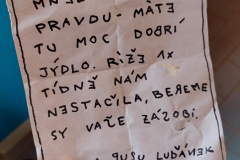 PRAVDU - MÁTE
TU MOC DOBRÍ
JÝDLO. RÍŽE 1x
TÍDNĚ NÁM
NESTAČILA, BEREME
SY VAŠE ZÁZOBÍ.
LUŠÁNEK